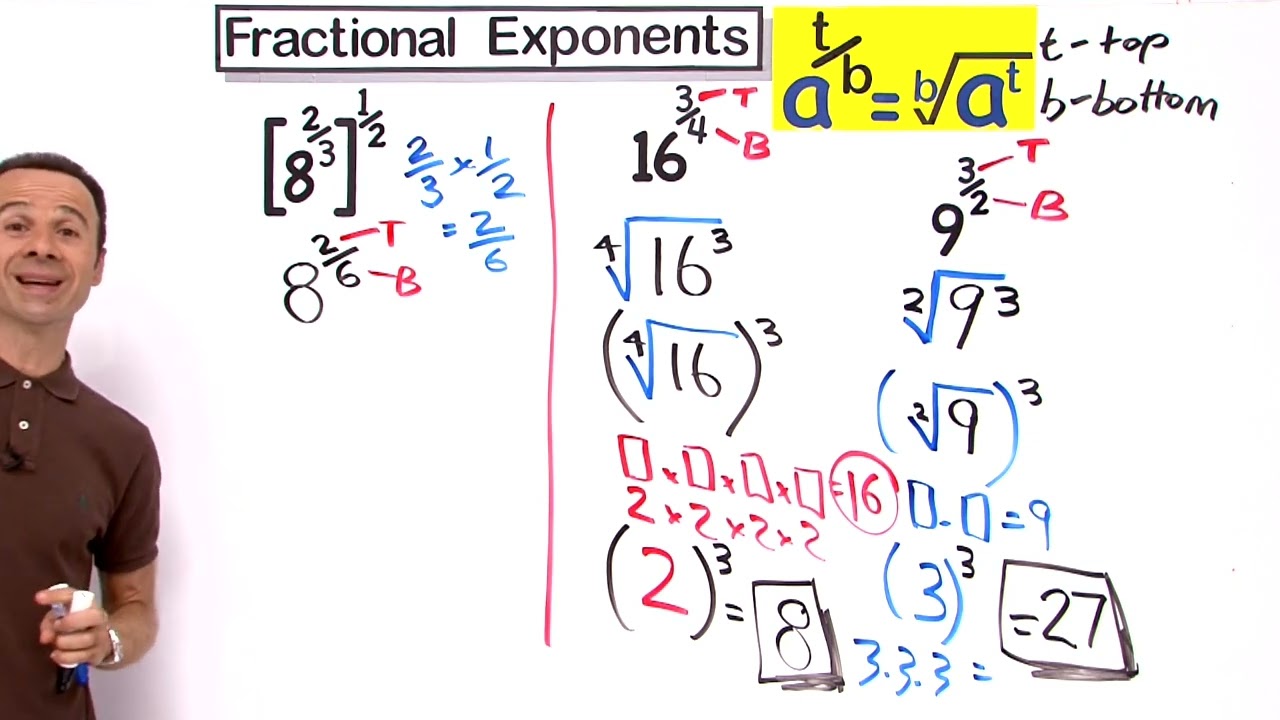 Fractional Exponents
a^(t/b) = ᵇ√(aᵗ)
t - top
b - bottom
[8^(2/3)]^(1/2)
2/3 × 1/2
= 2/6
8^(2/6)
T
B
16^(3/4)
T
B
⁴√(16³)
(⁴√16)³
□ × □ × □ × □ = 16
2 × 2 × 2 × 2
(2)³ = 8
9^(3/2)
T
B
²√(9³)
(²√9)³
□ · □ = 9
(3)³ = 27
3 · 3 · 3 =